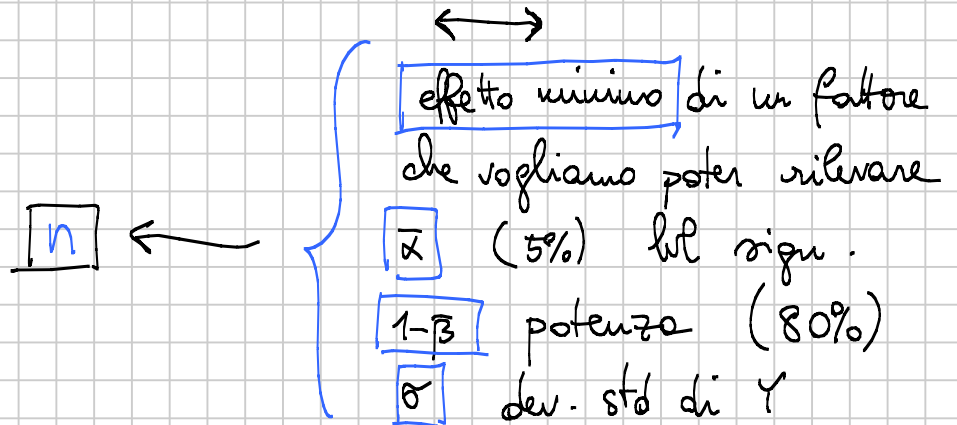 effetto minimo di un fattore
che vogliamo poter rilevare
n
ᾱ (5%) lvl sign.
1-β̄ potenza (80%)
σ dev. std di Y